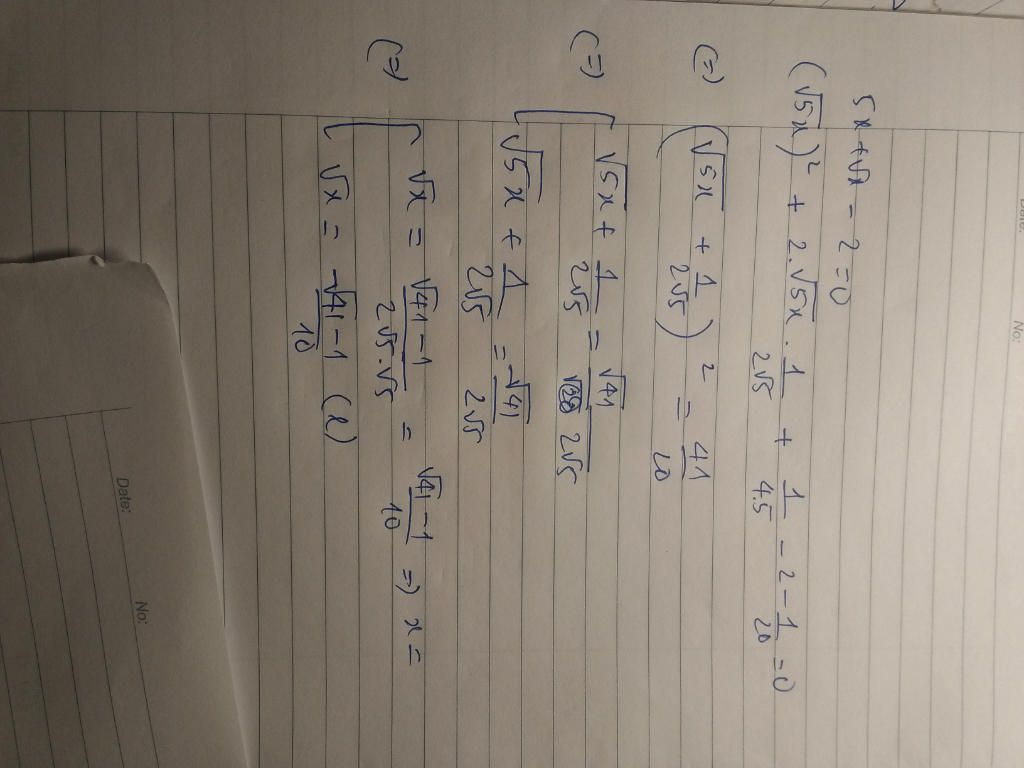 5x + √x - 2 = 0
(√5x)² + 2.√5x . 1/2√5 + 1/4.5 - 2 - 1/20 = 0
(=) (√5x + 1/2√5)² = 41/20
(=) [ √5x + 1/2√5 = √41/2√5
√5x + 1/2√5 = -√41/2√5
(=) [ √x = √41 - 1/2√5.√5 = √41 - 1/10 => x =
√x = -√41 - 1/10 (l)
Date:
No:
Date:
No: